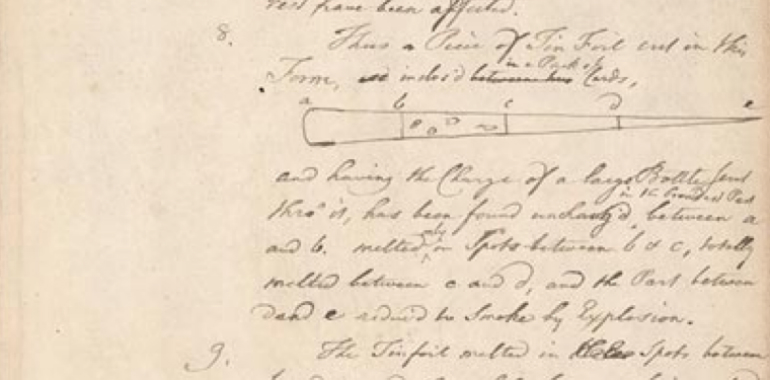 rest have been affected.
8. Thus a Piece of Tin Foil cut in this
in a Pack of
Form, inclos'd between two Cards,
a b c d e
and having the Charge of a large Bottle sent
in the broadest Part
thro' it, has been found unchang'd between a
only
and b. melted in Spots between b & c, totally
melted between c and d, and the Part between
d and e reduc'd to Smoke by Explosion.
9. The Tinfoil melted in Spots between